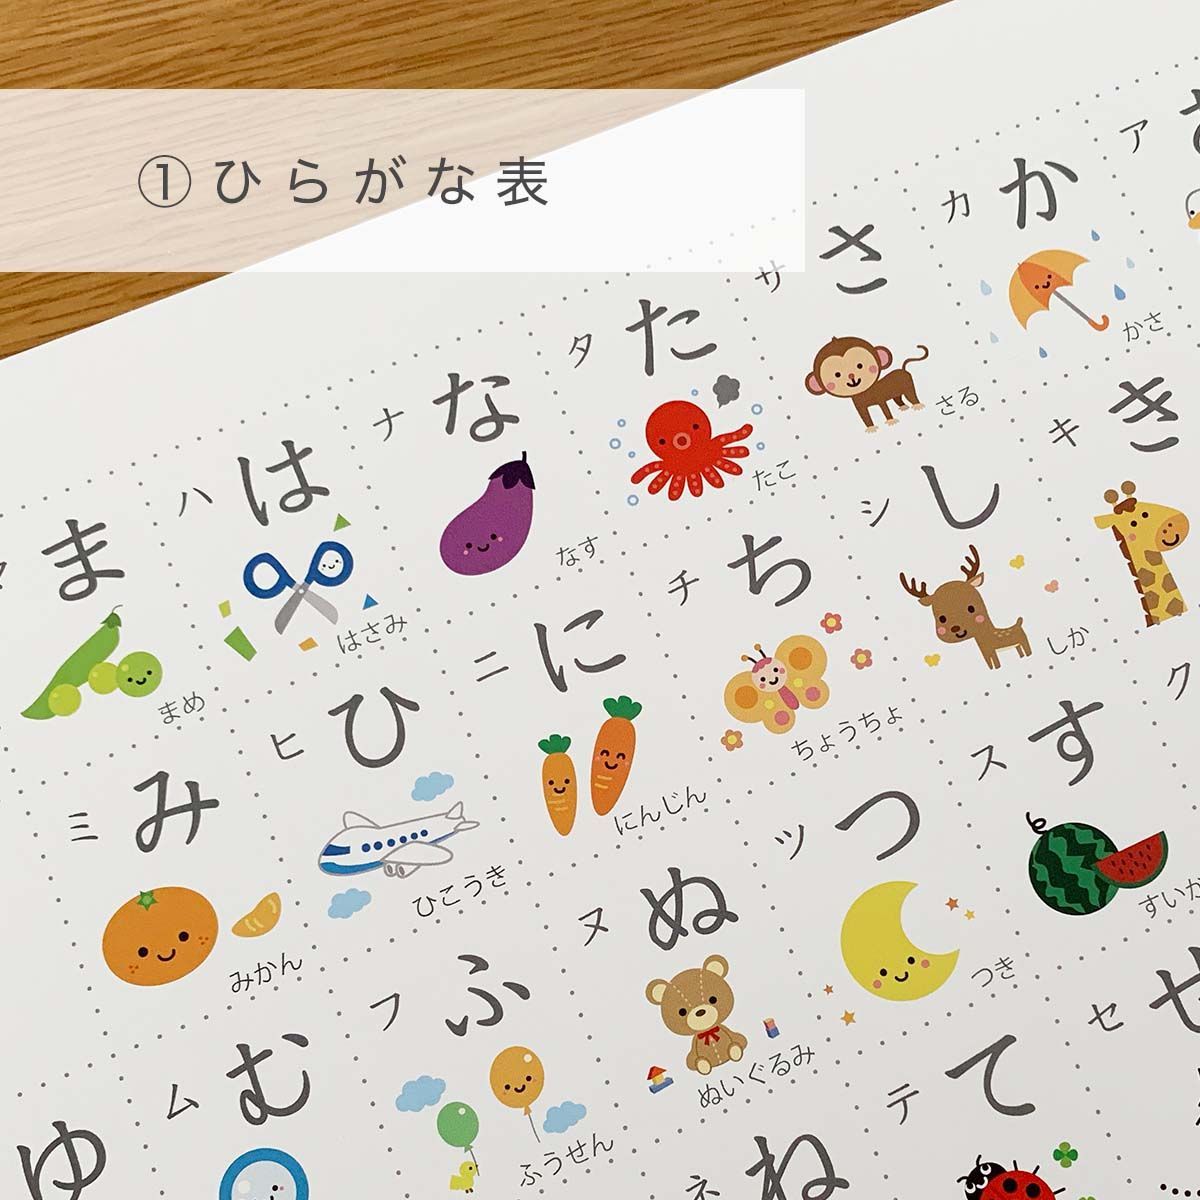 ①ひらがな表
ア
カ
か
かさ
キ
き
ク
サ
さ
さる
シ
し
しか
ス
す
すいか
セ
せ
タ
た
たこ
チ
ち
ちょうちょ
ツ
つ
つき
テ
て
ナ
な
なす
ニ
に
にんじん
ヌ
ぬ
ぬいぐるみ
ネ
ね
ハ
は
はさみ
ヒ
ひ
ひこうき
フ
ふ
ふうせん
ま
まめ
ミ
み
みかん
ム
む
ゆ